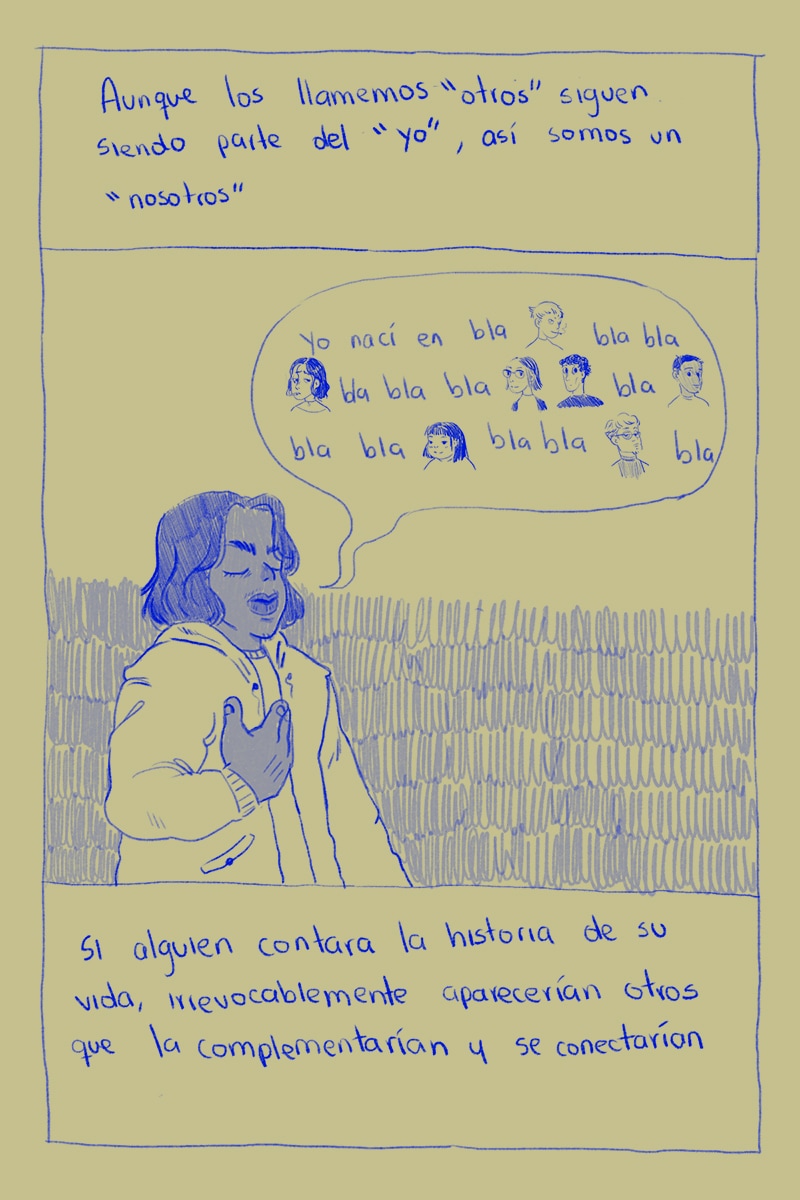 Aunque los llamemos "otros" siguen
siendo parte del "yo", así somos un
"nosotros"
yo nací en bla bla bla
bla bla bla bla
bla bla bla bla bla
Si alguien contara la historia de su
vida, irrevocablemente aparecerían otros
que la complementarían y se conectarían